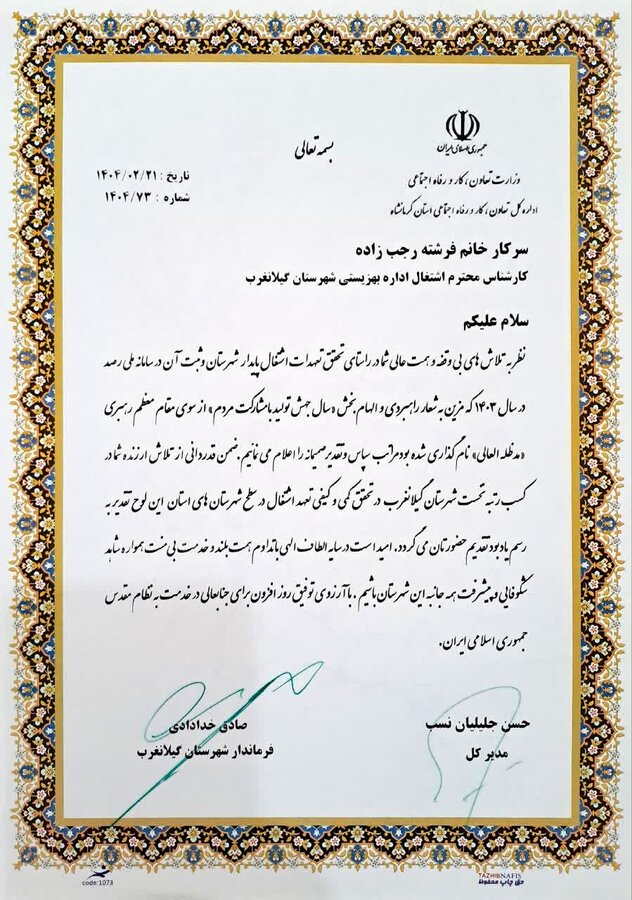 جمهوری اسلامی ایران
بسمه تعالی
تاریخ : ۱۴۰۴/۰۲/۲۱
شماره : ۱۴۰۴/۷۳
وزارت تعاون، کار و رفاه اجتماعی
اداره کل تعاون، کار و رفاه اجتماعی استان کرمانشاه
سرکار خانم فرشته رجب زاده
کارشناس محترم اشتغال اداره بهزیستی شهرستان گیلانغرب
سلام علیکم
نظر به تلاش های بی وقفه و همت عالی شما در راستای تحقق تعهدات اشتغال پایدار شهرستان و ثبت آن در سامانه ملی رصد
در سال ۱۴۰۳ که مزین به شعار راهبردی و الهام بخش «سال جهش تولید با مشارکت مردم» از سوی مقام معظم رهبری
«مدظله العالی» نام گذاری شده بود مراتب سپاس و تقدیر صمیمانه را اعلام می نمایم .ضمن قدردانی از تلاش ارزنده شما در
کسب رتبه نخست شهرستان گیلانغرب در تحقق کمی و کیفی تعهد اشتغال در سطح شهرستان های استان این لوح تقدیر به
رسم یادبود تقدیم حضورتان می گردد. امید است در سایه الطاف الهی با تداوم همت بلند و خدمت بی منت همواره شاهد
شکوفایی و پیشرفت همه جانبه این شهرستان باشیم . با آرزوی توفیق روز افزون برای جنابعالی در خدمت به نظام مقدس
جمهوری اسلامی ایران.
حسن جلیلیان نسب
مدیر کل
صادق خدادادی
فرماندار شهرستان گیلانغرب
code:1073
TAZHIBNAFIS
حق چاپ محفوظ